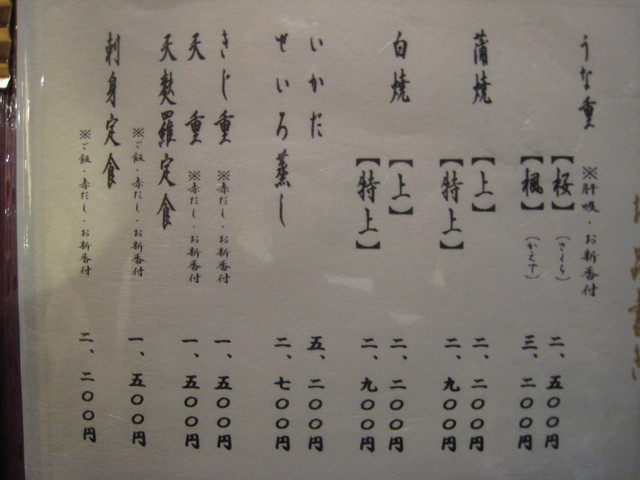 うな重 ※肝吸・お新香付
【桜】(さくら) 二、五〇〇円
【楓】(かえで) 三、二〇〇円
蒲焼
【上】 二、二〇〇円
【特上】 二、九〇〇円
白焼
【上】 二、二〇〇円
【特上】 二、九〇〇円
いかだ 五、二〇〇円
せいろ蒸し 二、七〇〇円
きじ重 ※赤だし・お新香付 一、五〇〇円
天重 ※赤だし・お新香付 一、五〇〇円
天麩羅定食 ※ご飯・赤だし・お新香付 一、五〇〇円
刺身定食 ※ご飯・赤だし・お新香付 二、二〇〇円